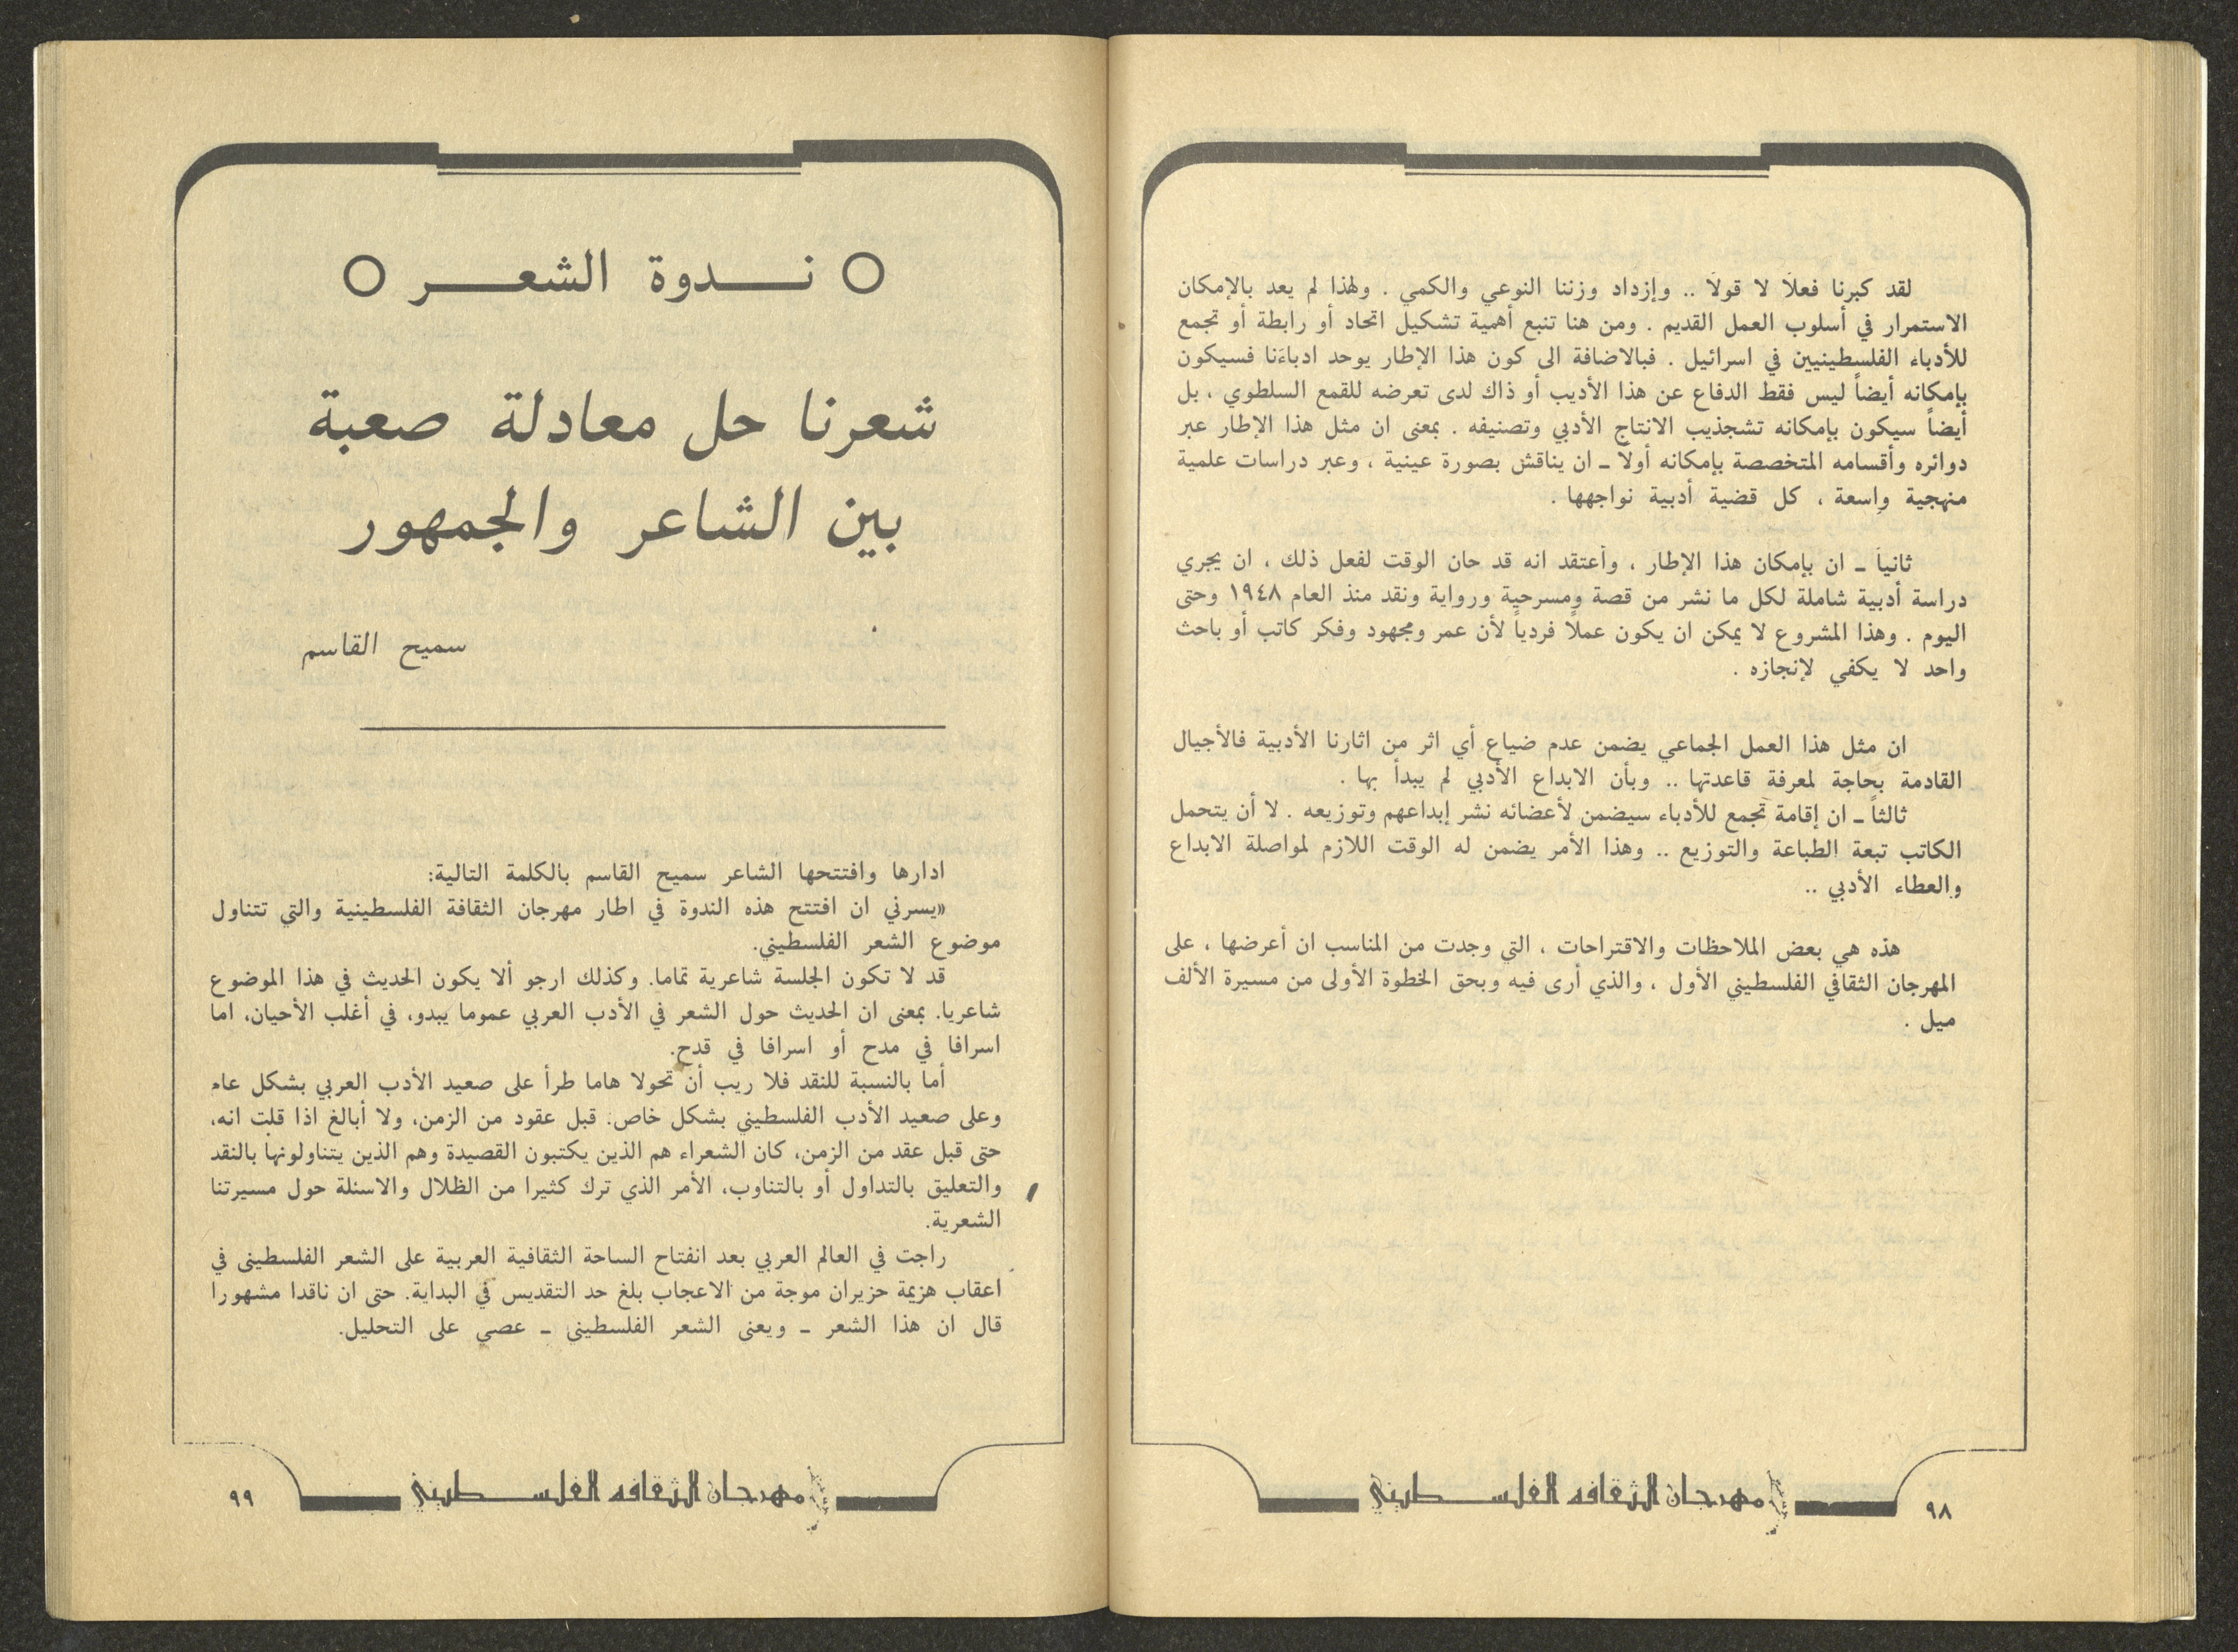 لقد كبرنا فعلاً لا قولاً .. وإزداد وزننا النوعي والكمي . ولهذا لم يعد بالإمكان
الاستمرار في أسلوب العمل القديم . ومن هنا تنبع أهمية تشكيل اتحاد أو رابطة أو تجمع
للأدباء الفلسطينيين في اسرائيل . فبالاضافة الى كون هذا الإطار يوحد ادباءَنا فسيكون
بإمكانه أيضاً ليس فقط الدفاع عن هذا الأديب أو ذاك لدى تعرضه للقمع السلطوي ، بل
أيضاً سيكون بإمكانه تشجذيب الانتاج الأدبي وتصنيفه . بمعنى ان مثل هذا الإطار عبر
دوائره وأقسامه المتخصصة بإمكانه أولاً ـ ان يناقش بصورة عينية ، وعبر دراسات علمية
منهجية واسعة ، كل قضية أدبية نواجهها .
ثانياً ـ ان بإمكان هذا الإطار ، وأعتقد انه قد حان الوقت لفعل ذلك ، ان يجري
دراسة أدبية شاملة لكل ما نشر من قصة ومسرحية ورواية ونقد منذ العام ١٩٤٨ وحتى
اليوم . وهذا المشروع لا يمكن ان يكون عملاً فردياً لأن عمر ومجهود وفكر كاتب أو باحث
واحد لا يكفي لإنجازه .
ان مثل هذا العمل الجماعي يضمن عدم ضياع أي اثر من اثارنا الأدبية فالأجيال
القادمة بحاجة لمعرفة قاعدتها .. وبأن الابداع الأدبي لم يبدأ بها .
ثالثاً ـ ان إقامة تجمع للأدباء سيضمن لأعضائه نشر إبداعهم وتوزيعه . لا أن يتحمل
الكاتب تبعة الطباعة والتوزيع .. وهذا الأمر يضمن له الوقت اللازم لمواصلة الابداع
والعطاء الأدبي ..
هذه هي بعض الملاحظات والاقتراحات ، التي وجدت من المناسب ان أعرضها ، على
المهرجان الثقافي الفلسطيني الأول ، والذي أرى فيه وبحق الخطوة الأولى من مسيرة الألف
ميل .
مهرجان الثقافه الفلسطيني
٩٨
نـدوة الشعـر
شعرنا حل معادلة صعبة
بين الشاعر والجمهور
سميح القاسم
ادارها وافتتحها الشاعر سميح القاسم بالكلمة التالية:
«يسرني ان افتتح هذه الندوة في اطار مهرجان الثقافة الفلسطينية والتي تتناول
موضوع الشعر الفلسطيني.
قد لا تكون الجلسة شاعرية تماما. وكذلك ارجو ألا يكون الحديث في هذا الموضوع
شاعريا. بمعنى ان الحديث حول الشعر في الأدب العربي عموما يبدو، في أغلب الأحيان، اما
اسرافا في مدح أو اسرافا في قدح.
أما بالنسبة للنقد فلا ريب أن تحولا هاما طرأ على صعيد الأدب العربي بشكل عام
وعلى صعيد الأدب الفلسطيني بشكل خاص. قبل عقود من الزمن، ولا أبالغ اذا قلت انه،
حتى قبل عقد من الزمن، كان الشعراء هم الذين يكتبون القصيدة وهم الذين يتناولونها بالنقد
والتعليق بالتداول أو بالتناوب، الأمر الذي ترك كثيرا من الظلال والاسئلة حول مسيرتنا
الشعرية.
راجت في العالم العربي بعد انفتاح الساحة الثقافية العربية على الشعر الفلسطينى في
اعقاب هزيمة حزيران موجة من الاعجاب بلغ حد التقديس في البداية. حتى ان ناقدا مشهورا
قال ان هذا الشعر ـ ويعنى الشعر الفلسطيني ـ عصي على التحليل.
مهرجان الثقافه الفلسطيني
٩٩